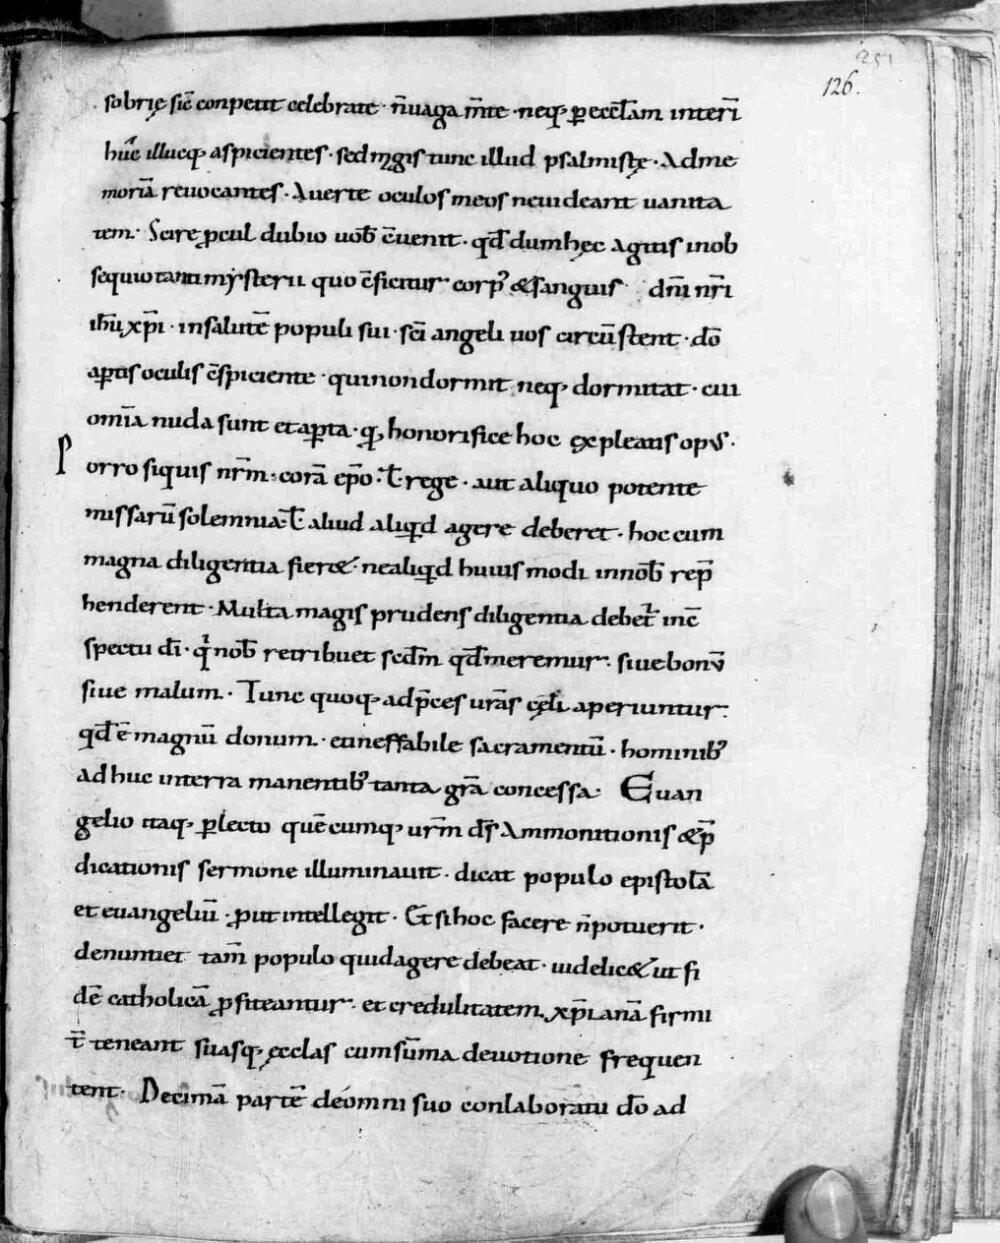 251
126.
sobrię sic̄ conpetit celebrate · n̄ uaga m̄te · neq; ꝑ eccl̄am interī
huc̄ illucq; aspicientes · sed magis tunc illud psalmistę · Ad me
moriā reuocantes · Auerte oculos meos ne uideant uanita
tem · Scire ꝓcul dubio uob̄ c̄uenit · qd̄ dum hęc agitis in ob
sequio tanti mẏsterii quo c̄ficitur corp᾿ & sanguis dn̄i nr̄i
ih̄u xp̄i · in salutē populi sui · sc̄i angeli uos circūstent · dō
aꝑtis oculis c̄spiciente · qui non dormit neq; dormitat · cui
om̄ia nuda sunt et aꝑta · q; honorifice hoc expleatis op᾿ ·
Porro siquis nr̄m · corā ep̄o · ł rege · aut aliquo potente
missarū solemnia · ł aliud aliqd̄ agere deberet · hoc cum
magna diligentia fier& · ne aliqd̄ huius modi in nob̄ rep̄
henderent · Multa magis prudens diligentia debet̄ in c̄
spectu dī · qͥ nob̄ retribuet sed̄m qd̄ meremur · siue bonū
siue malum · Tunc quoq; ad p̄ces ur̄as cęli aperiuntur ·
qd̄ ē magnū donum · et ineffabile sacramentū · hominib᾿
ad huc in terra manentib᾿ tanta gr̄a concessa · Euan
gelio itaq; ꝑlecto quēcumq; ur̄m ds̄ Ammonitionis & p̄
dicationis sermone illuminauit · dicat populo epistolā
et euangeliū · ꝓut intellegit · Et si hoc facere n̄ potuerit ·
denuntiet tam̄ populo quid agere debeat · uidelic& ut fi
dē catholicā ꝓfiteantur · et credulitatem xp̄ianā firmi
t̄ teneant suasq; ęcclas cum sūma deuotione frequen
tent · Decimā partē de omni suo conlaboratu dō ad